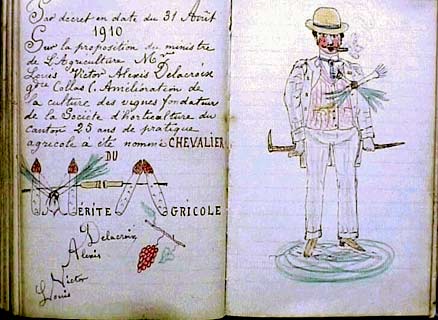 Par decret en date du 31 Août
1910
Sur la proposition du ministre
de L'Agriculture Mr
Louis Victor Alexis Delacroix
Collas Amélioration de
la culture des vignes fondateur
de la Societe d'horticulture du
Canton 25 ans de pratique
agricole a été nommé CHEVALIER
DU
MERITE AGRICOLE
Delacroix
Alexis
Victor
Louis